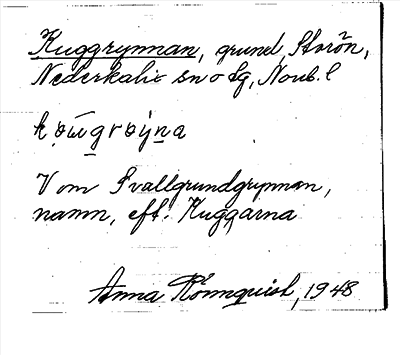 Kuggrynnan, grund, Storön,
Nederkalix sn o tg, Norrb. l
V om Svallgrundgrynnan,
namn, eft. Kuggarna
Anna Rönnquist, 1948